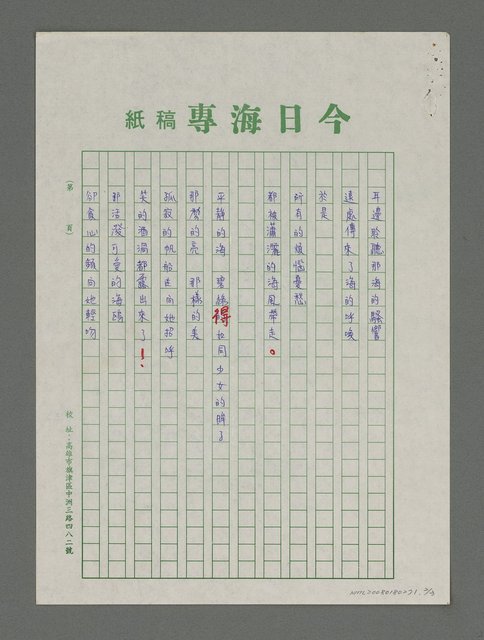 今日海專稿紙
耳邊聆聽那海的騷響
遠處傳來了海的呼喚
於是
所有的煩惱憂愁
都被瀟灑的海風帶走。
平靜的海 碧綠得如同少女的眸子
那麼的亮 那樣的美
孤寂的帆船在向她招呼
笑的酒渦都露出來了！
那活潑可愛的海鷗
卻貪心的頻向她輕吻
(第 頁)
校址：高雄市旗津區中洲三路四八二號
NMTL20080180221. 2/3